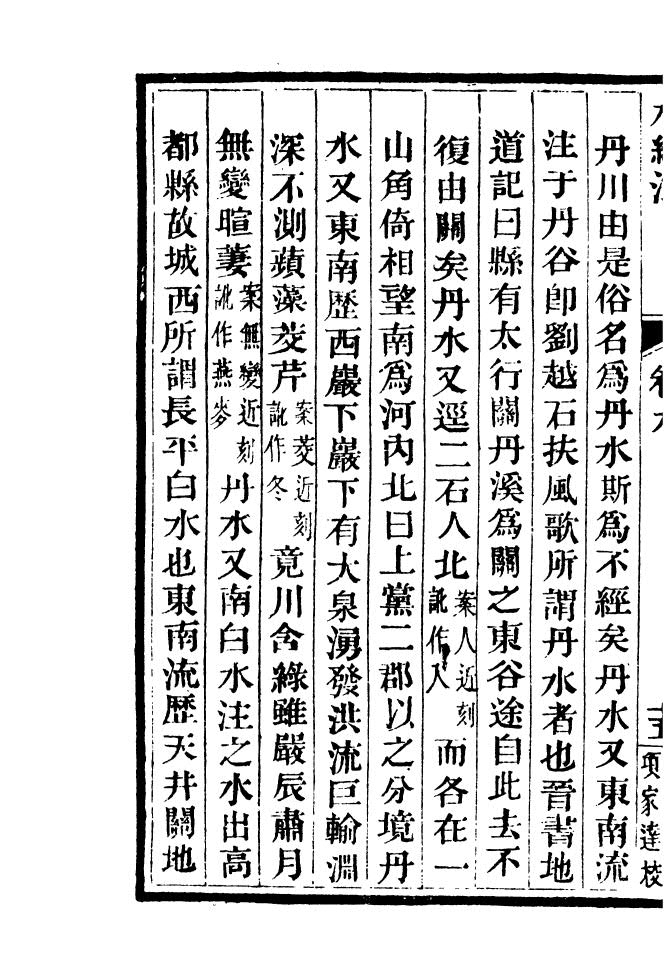 水經注 卷九 十五 項家達校
丹川由是俗名爲丹水斯爲不經矣丹水又東南流
注于丹谷卽劉越石扶風歌所謂丹水者也晉書地
道記曰縣有太行關丹溪爲關之東谷途自此去不
復由關矣丹水又逕二石人北案人近刻訛作入而各在一
山角倚相望南爲河內北曰上黨二郡以之分境丹
水又東南歷西巖下巖下有大泉湧發洪流巨輸淵
深不測蘋藻茭芹案茭近刻訛作冬竟川含綠雖嚴辰肅月
無變暄萋案無變近刻訛作燕麥丹水又南白水注之水出高
都縣故城西所謂長平白水也東南流歷天井關地